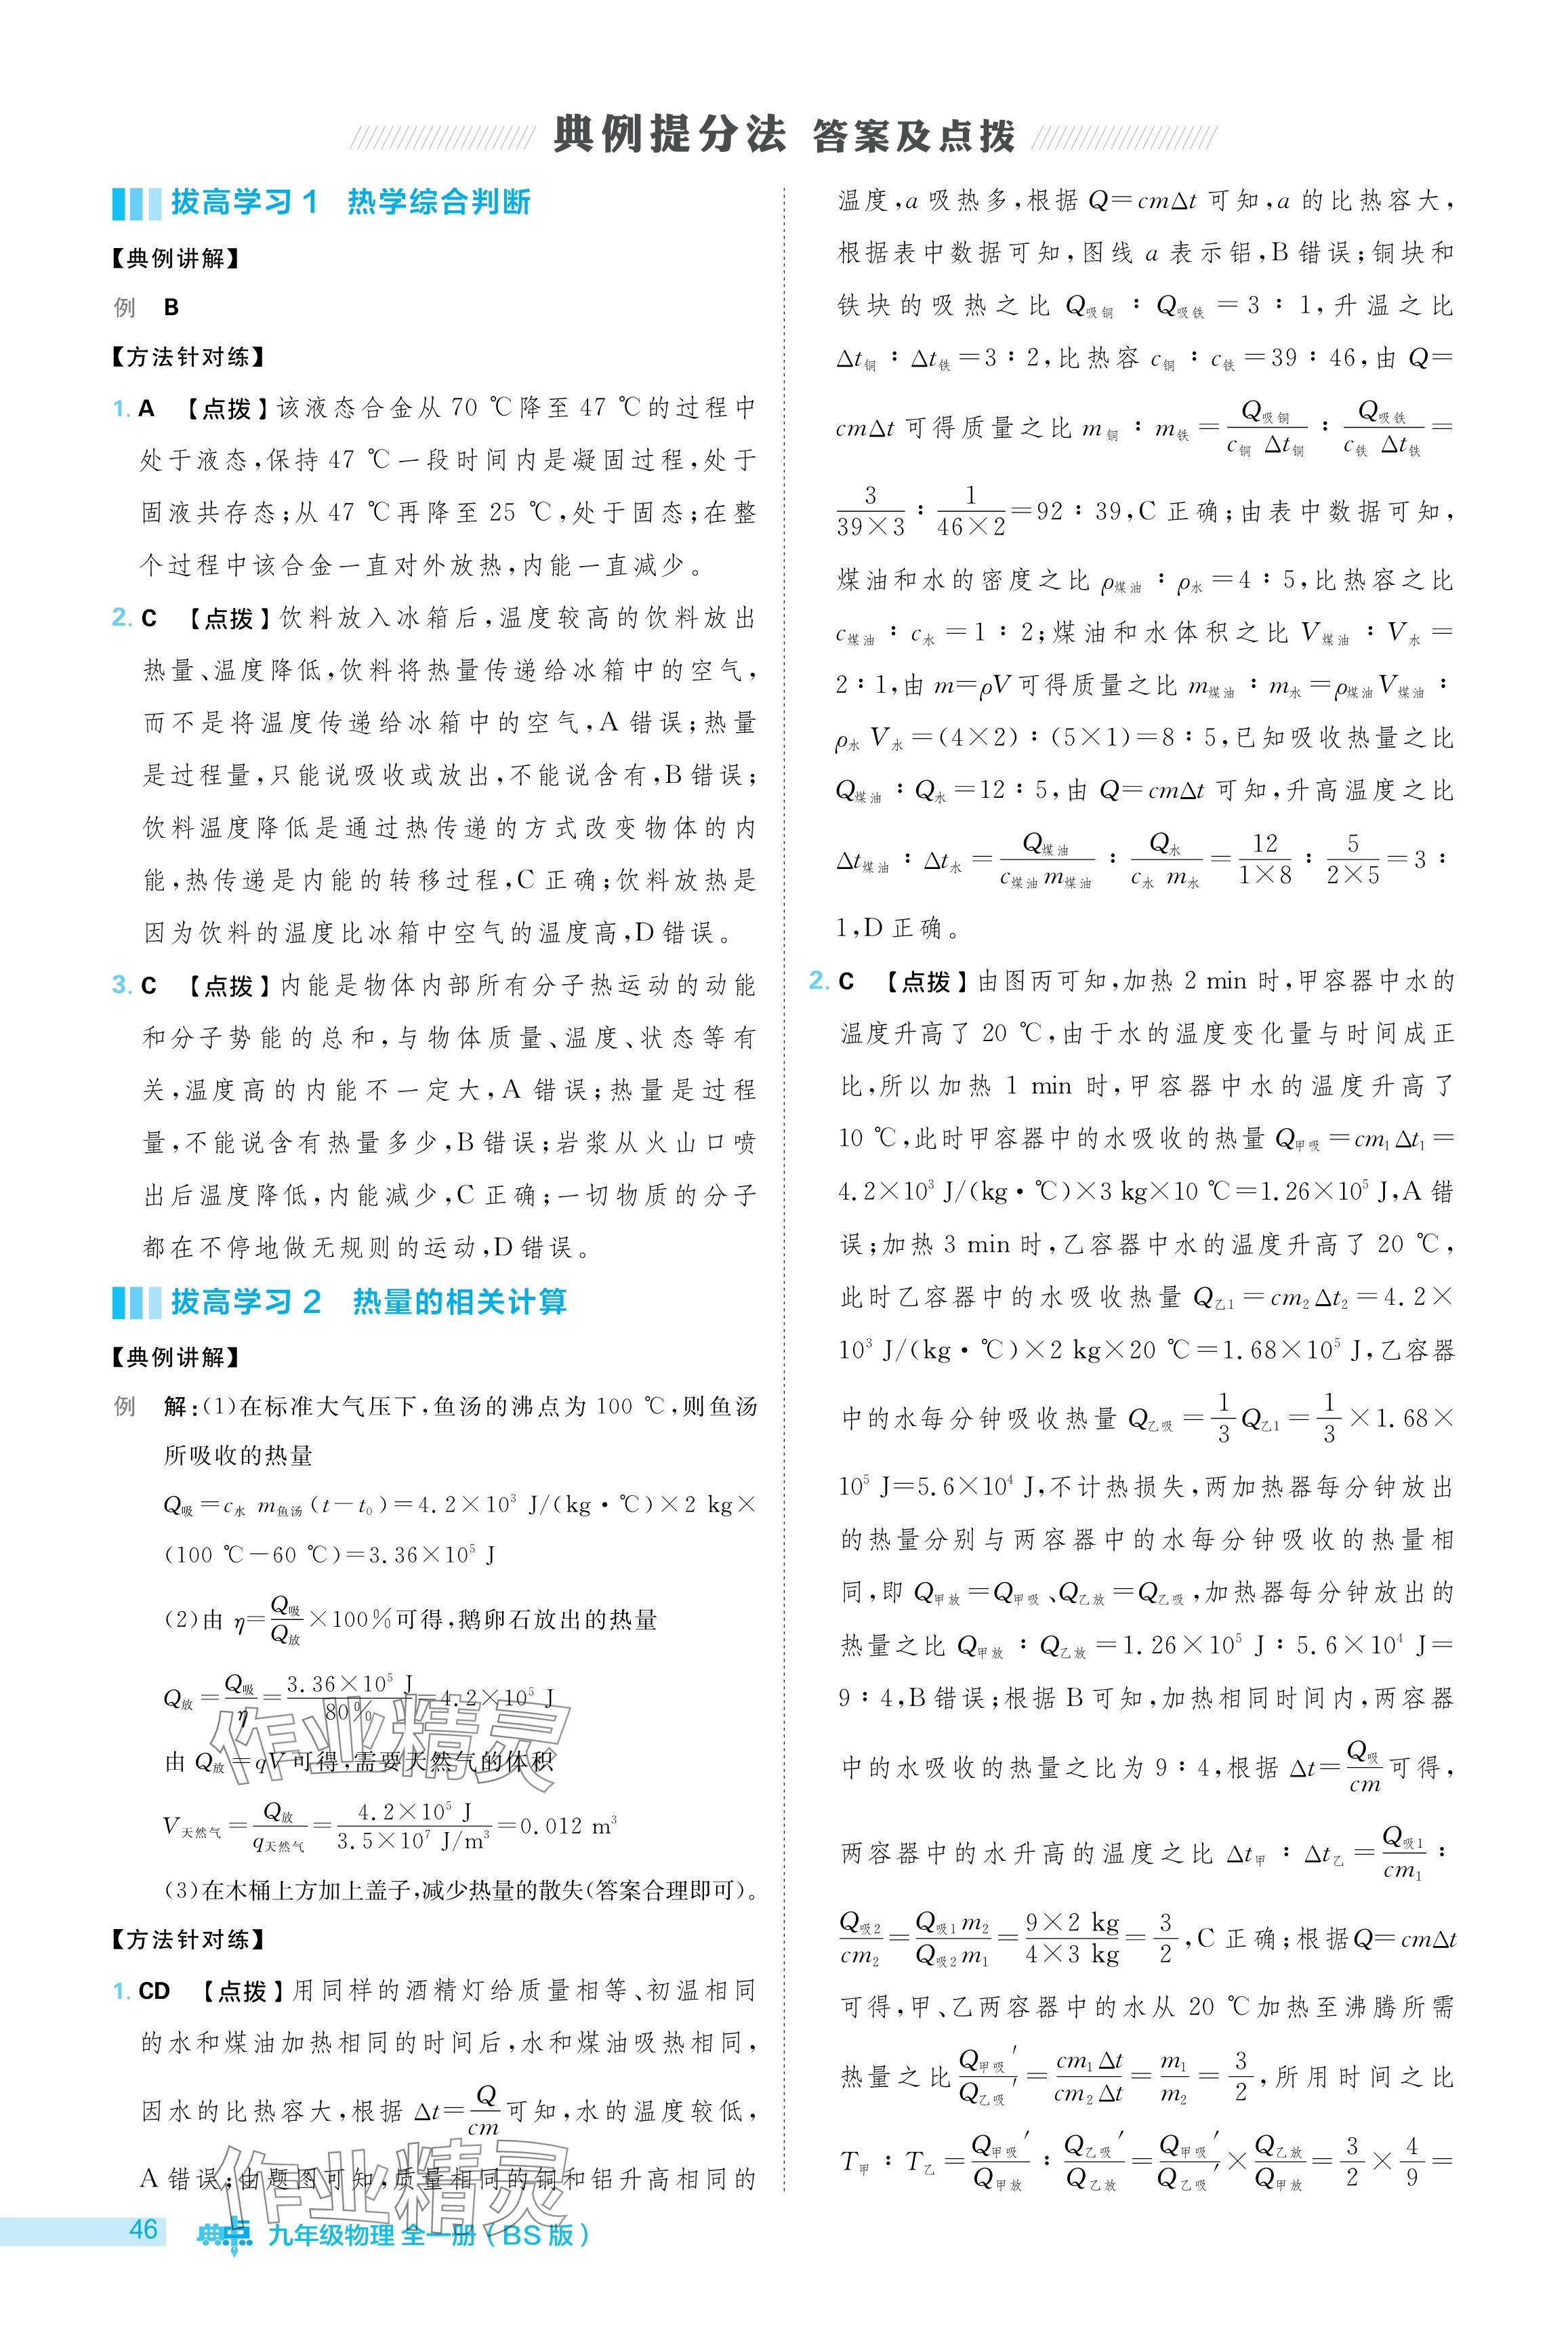 典例提分法 答案及点拨
拔高学习1 热学综合判断
【典例讲解】
例 B
【方法针对练】
1. A 【点拨】该液态合金从 70 ℃降至 47 ℃的过程中
处于液态,保持 47 ℃一段时间内是凝固过程,处于
固液共存态;从 47 ℃再降至 25 ℃,处于固态;在整
个过程中该合金一直对外放热,内能一直减少。
2. C 【点拨】饮料放入冰箱后,温度较高的饮料放出
热量、温度降低,饮料将热量传递给冰箱中的空气,
而不是将温度传递给冰箱中的空气,A 错误;热量
是过程量,只能说吸收或放出,不能说含有,B错误;
饮料温度降低是通过热传递的方式改变物体的内
能,热传递是内能的转移过程,C 正确;饮料放热是
因为饮料的温度比冰箱中空气的温度高,D错误。
3. C 【点拨】内能是物体内部所有分子热运动的动能
和分子势能的总和,与物体质量、温度、状态等有
关,温度高的内能不一定大,A 错误;热量是过程
量,不能说含有热量多少,B错误;岩浆从火山口喷
出后温度降低,内能减少,C 正确;一切物质的分子
都在不停地做无规则的运动,D错误。
拔高学习2 热量的相关计算
【典例讲解】
例 解:(1)在标准大气压下,鱼汤的沸点为 100 ℃,则鱼汤
所吸收的热量
Q吸=c水 m鱼汤(t-t₀)=4.2×10³ J/(kg·℃)×2 kg×
(100 ℃-60 ℃)=3.36×10⁵ J
(2)由 η=Q吸/Q放×100%可得,鹅卵石放出的热量
Q放=Q吸/η=3.36×10⁵ J/80%=4.2×10⁵ J
由 Q放=qV 可得,需要天然气的体积
V天然气=Q放/q天然气=4.2×10⁵ J/3.5×10⁷ J/m³=0.012 m³
(3)在木桶上方加上盖子,减少热量的散失(答案合理即可)。
【方法针对练】
1. CD 【点拨】用同样的酒精灯给质量相等、初温相同
的水和煤油加热相同的时间后,水和煤油吸热相同,
因水的比热容大,根据 Δt=Q/cm可知,水的温度较低,
A 错误;由题图可知,质量相同的铜和铝升高相同的
温度,a 吸热多,根据 Q=cmΔt 可知,a 的比热容大,
根据表中数据可知,图线 a 表示铝,B 错误;铜块和
铁块的吸热之比 Q吸铜∶Q吸铁=3∶1,升温之比
Δt铜∶Δt铁=3∶2,比热容 c铜∶c铁=39∶46,由 Q=
cmΔt 可得质量之比 m铜∶m铁=Q吸铜/c铜 Δt铜∶Q吸铁/c铁 Δt铁=
3/39×3∶1/46×2=92∶39,C 正确;由表中数据可知,
煤油和水的密度之比 ρ煤油∶ρ水=4∶5,比热容之比
c煤油∶c水=1∶2;煤油和水体积之比 V煤油∶V水=
2∶1,由 m=ρV可得质量之比 m煤油∶m水=ρ煤油V煤油∶
ρ水 V水=(4×2)∶(5×1)=8∶5,已知吸收热量之比
Q煤油∶Q水=12∶5,由 Q=cmΔt 可知,升高温度之比
Δt煤油∶Δt水=Q煤油/c煤油m煤油∶Q水/c水 m水=12/1×8∶5/2×5=3∶
1,D 正确。
2. C 【点拨】由图丙可知,加热 2 min 时,甲容器中水的
温度升高了 20 ℃,由于水的温度变化量与时间成正
比,所以加热 1 min 时,甲容器中水的温度升高了
10 ℃,此时甲容器中的水吸收的热量 Q甲吸=cm₁Δt₁=
4.2×10³ J/(kg·℃)×3 kg×10 ℃=1.26×10⁵ J,A 错
误;加热 3 min 时,乙容器中水的温度升高了 20 ℃,
此时乙容器中的水吸收热量 Q乙1=cm₂Δt₂=4.2×
10³ J/(kg·℃)×2 kg×20 ℃=1.68×10⁵ J,乙容器
中的水每分钟吸收热量 Q乙吸=1/3Q乙1=1/3×1.68×
10⁵ J=5.6×10⁴ J,不计热损失,两加热器每分钟放出
的热量分别与两容器中的水每分钟吸收的热量相
同,即 Q甲放=Q甲吸、Q乙放=Q乙吸,加热器每分钟放出的
热量之比 Q甲放∶Q乙放=1.26×10⁵ J∶5.6×10⁴ J=
9∶4,B错误;根据 B 可知,加热相同时间内,两容器
中的水吸收的热量之比为 9∶4,根据 Δt=Q吸/cm可得,
两容器中的水升高的温度之比 Δt甲∶Δt乙=Q吸1/cm₁∶
Q吸2/cm₂=Q吸1m₂/Q吸2m₁=9×2 kg/4×3 kg=3/2,C 正确;根据Q=cmΔt
可得,甲、乙两容器中的水从 20 ℃加热至沸腾所需
热量之比Q甲吸′/Q乙吸′=cm₁Δt/cm₂Δt=m₁/m₂=3/2,所用时间之比
T甲∶T乙=Q甲吸′/Q甲放∶Q乙吸′/Q乙放=Q甲吸′/Q乙吸′×Q乙放/Q甲放=3/2×4/9=
作业精灵
作业精灵
46 典点 九年级物理 全一册(BS版)